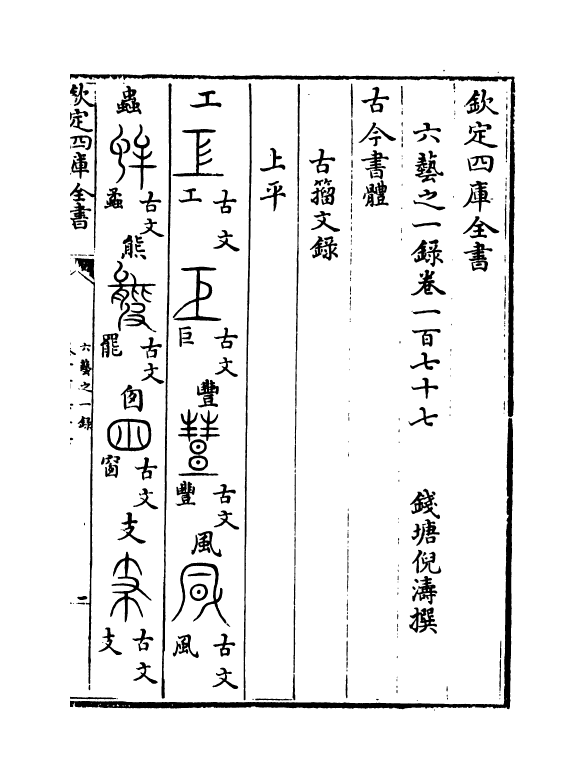 欽定四庫全書
六藝之一錄卷一百七十七 錢塘倪濤撰
古今書體
古籀文錄
上平
工 古文工 古文巨 豐 古文豐 風 古文風
蟲 古文䖝 熊 古文羆 囪 古文窗 支 古文支
欽定四庫全書
六藝之一錄